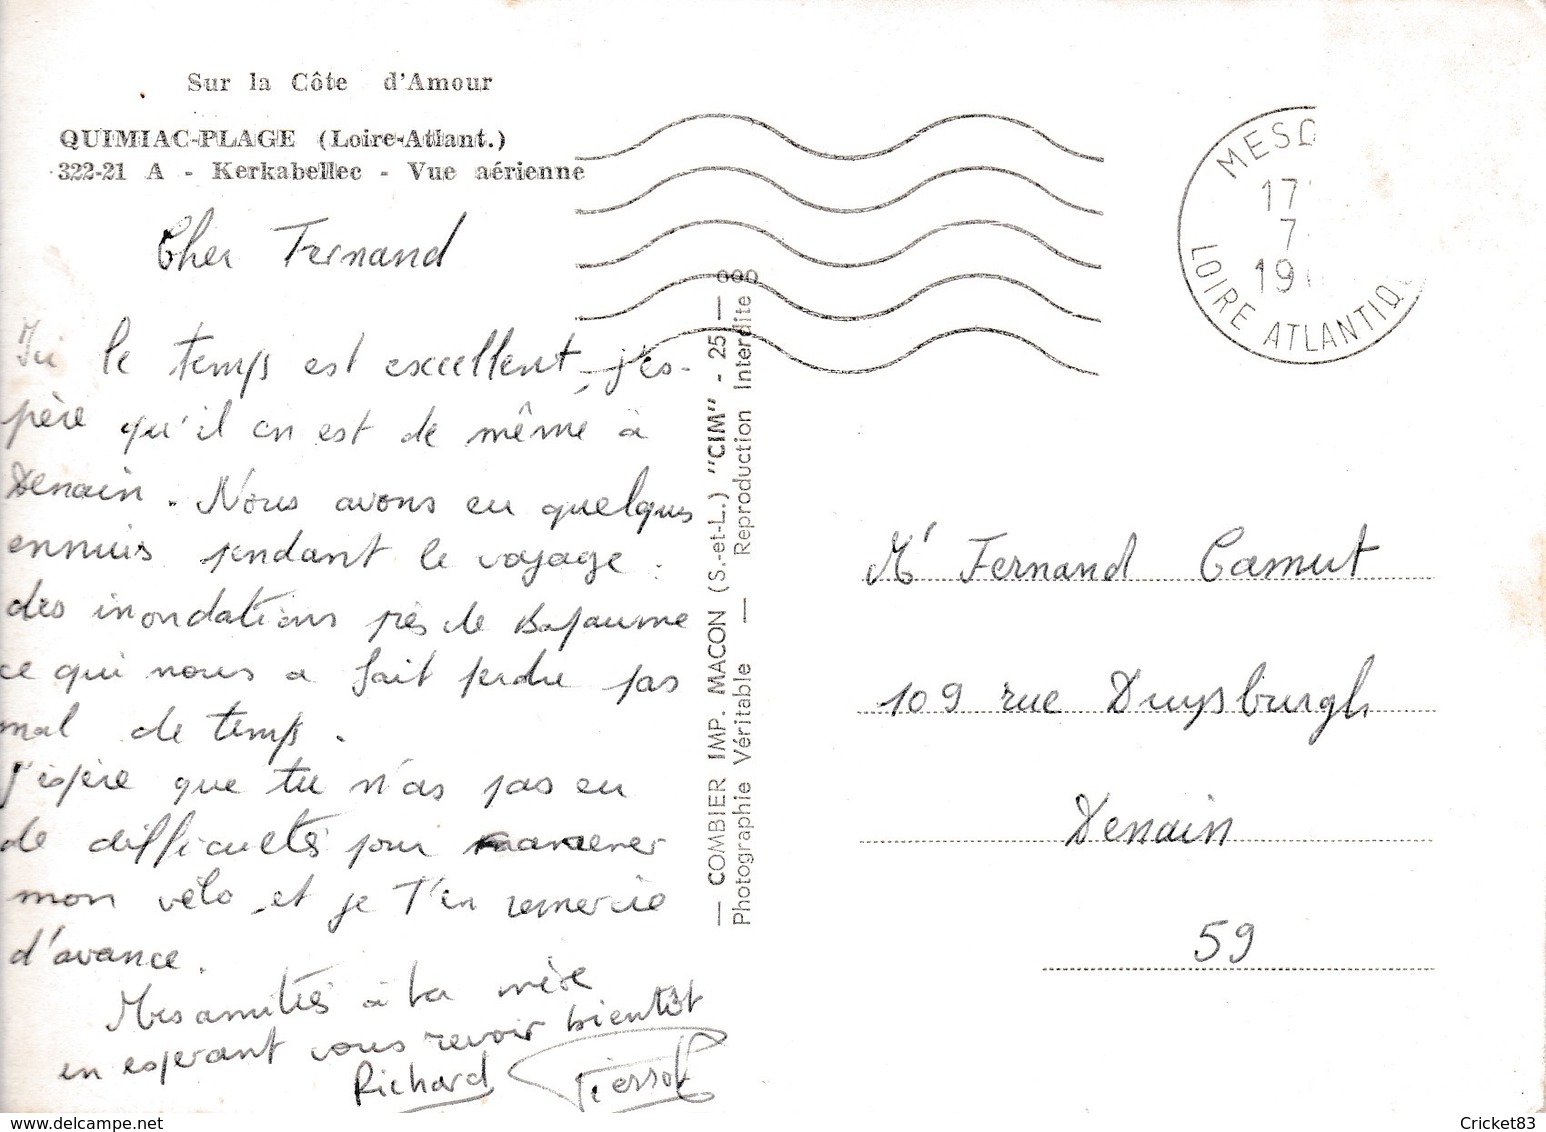 Sur la Côte d'Amour
QUIMIAC-PLAGE (Loire-Atlant.)
322-21 A - Kerkabellec - Vue aérienne
Cher Fernand
Ici le temps est excellent, j'es-
père qu'il en est de même à
Denain. Nous avons eu quelques
ennuis pendant le voyage :
des inondations près de Bapaume
ce qui nous a fait perdre pas
mal de temps.
J'espère que tu n'as pas eu
de difficultés pour ramener
mon vélo, et je t'en remercie
d'avance.
Mes amitiés à ta mère
en espérant vous revoir bientôt
Richard Pierrot
— COMBIER IMP. MACON (S.-et-L.) "CIM" - 25 — 000
Photographie Véritable — Reproduction Interdite
MESQ
17
7
19
LOIRE ATLANTIQ
Mr Fernand Camut
109 rue Duysburgh
Denain
59
www.delcampe.net
Cricket83